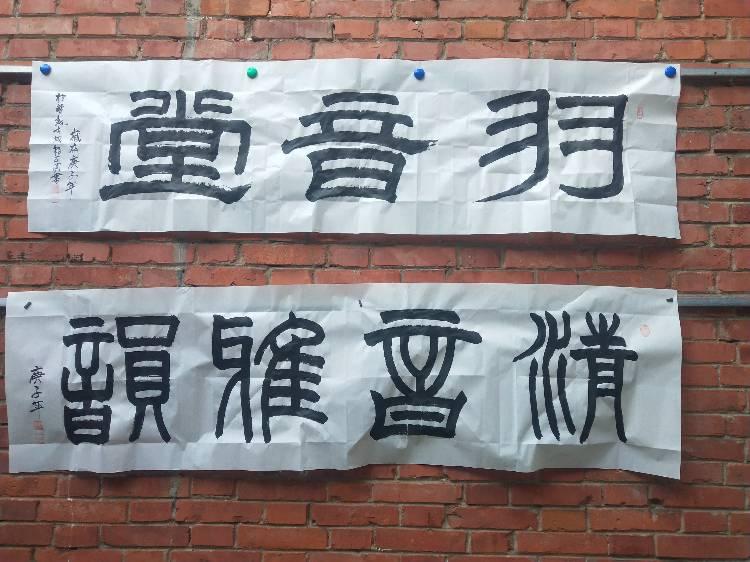 羽音堂
歲在庚子年
清音雅韻
庚子年